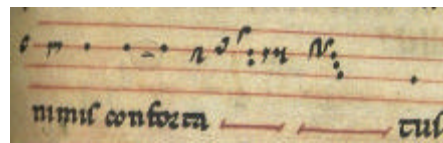 nimis conforta tus